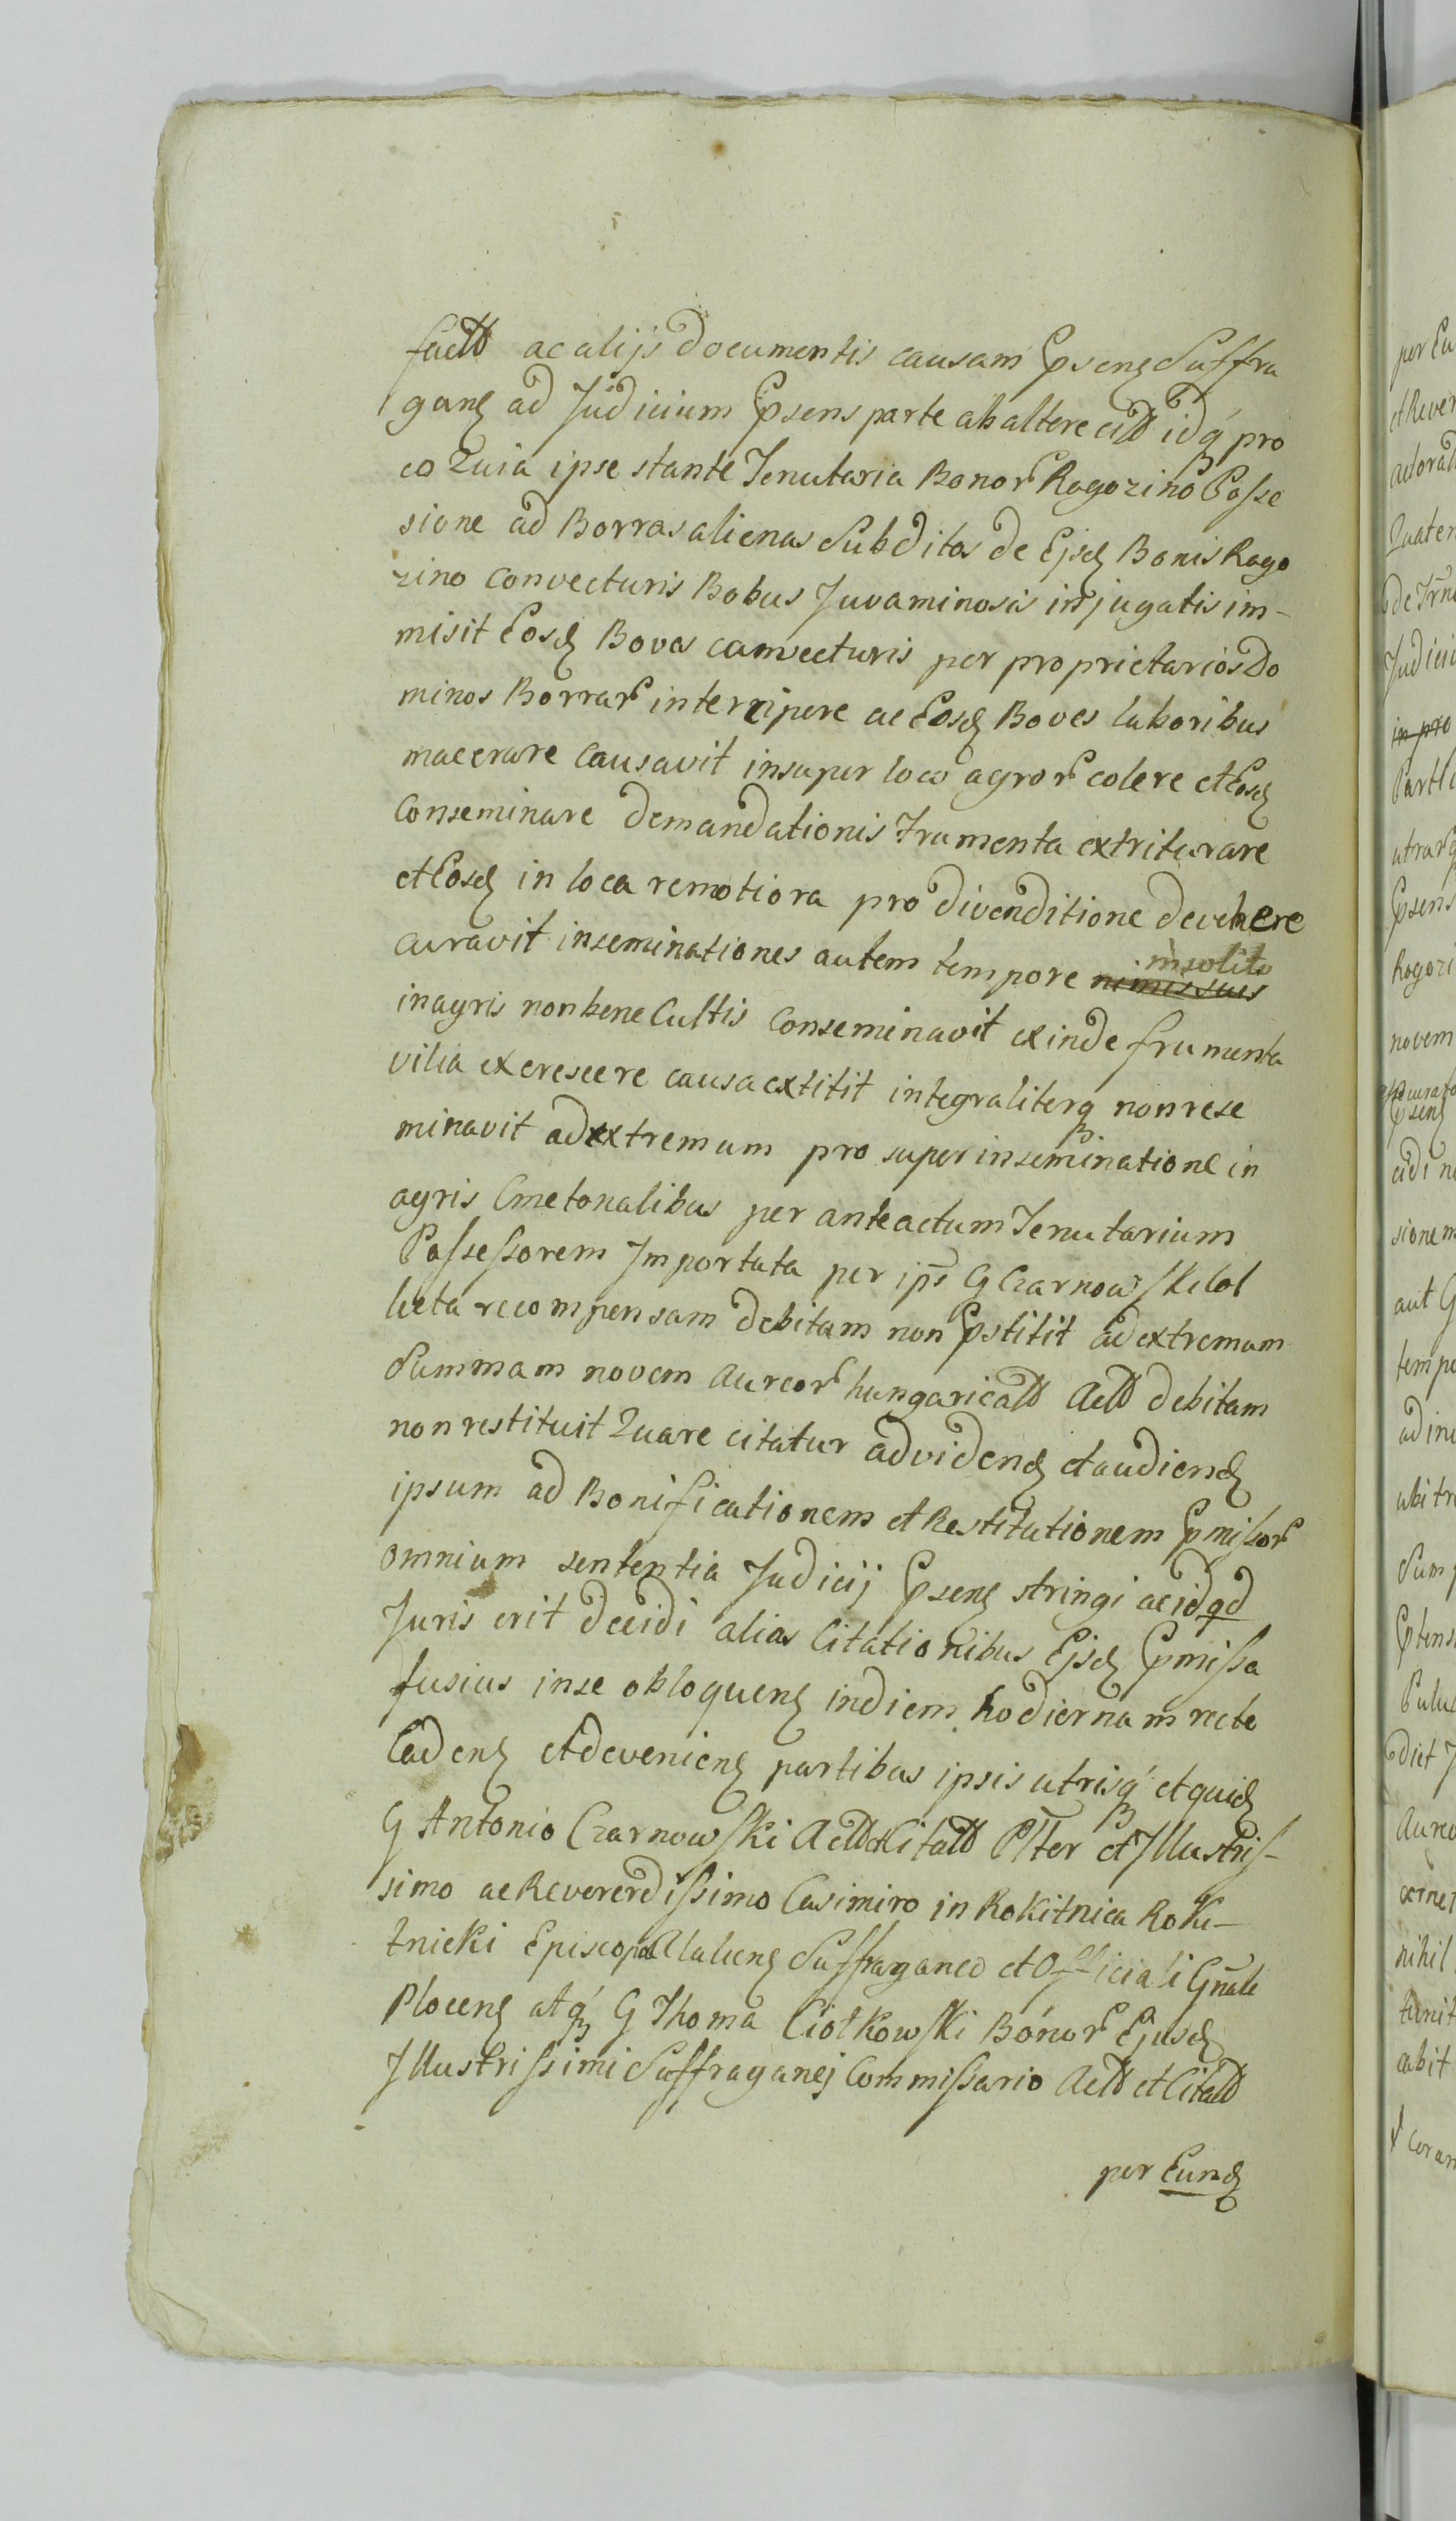 factt ac alijs documentis causam Pp̃sens Suffra
gans ad Judicium Pp̃sens parte ab altere citt idq́ pro
eo Quia ipse stante Tenutaria Bonor Ragozino Posse
sione ad Borras alienas Subditos de Ejsd Bonis Rago
zino convecturis Bobus Juvaminosis injugatis im-
misit Eosd Boves convecturis per proprietarios Do
minos Borrar intercipere ac Eosd Boves laboribus
macerare causavit insuper loco agror colere et Eosd
Conseminare demandationis frumenta extriturare
et Eosd in loca remotiora pro divenditione devehere
curavit inseminationes autem tempore insolito
in agris non bene Cultis Conseminavit exinde frumenta
vilia excrescere causa extitit integraliterq nonrese
minavit ad extremum pro superinseminatione in
agris Cmetonalibus per anteactum Tenutarium
Possessorem Importata per ips G Czarnowski Col
lecta recompensam debitam non pstitit ad extremum
Summam novem Aureor hungaricatt Actt debitam
non restituit Quare citatur ad videnđ et audienđ
ipsum ad Bonificationem et Restitutionem pmissor
omnium sententia Judicij Psens stringi ac id qd
Juris erit decidi alias Citationibus Ejsd pmissa
fusius in se obloquens in diem hodiernam recte
Cadens et deveniens partibus ipsis utrisq́ et quid
G Antonio Czarnowski Actt et Citatt Plter et Illustris-
simo ac Reverendissimo Casimiro in Rokitnica Roki-
tnicki Episcopo Alaliens Suffraganeo et Officiali Gnali
Plocens atq́ G Thoma Ciołkowski Bonor Ejusd
Illustrissimi Suffraganej Commissario Actt et Citatt
per Eund